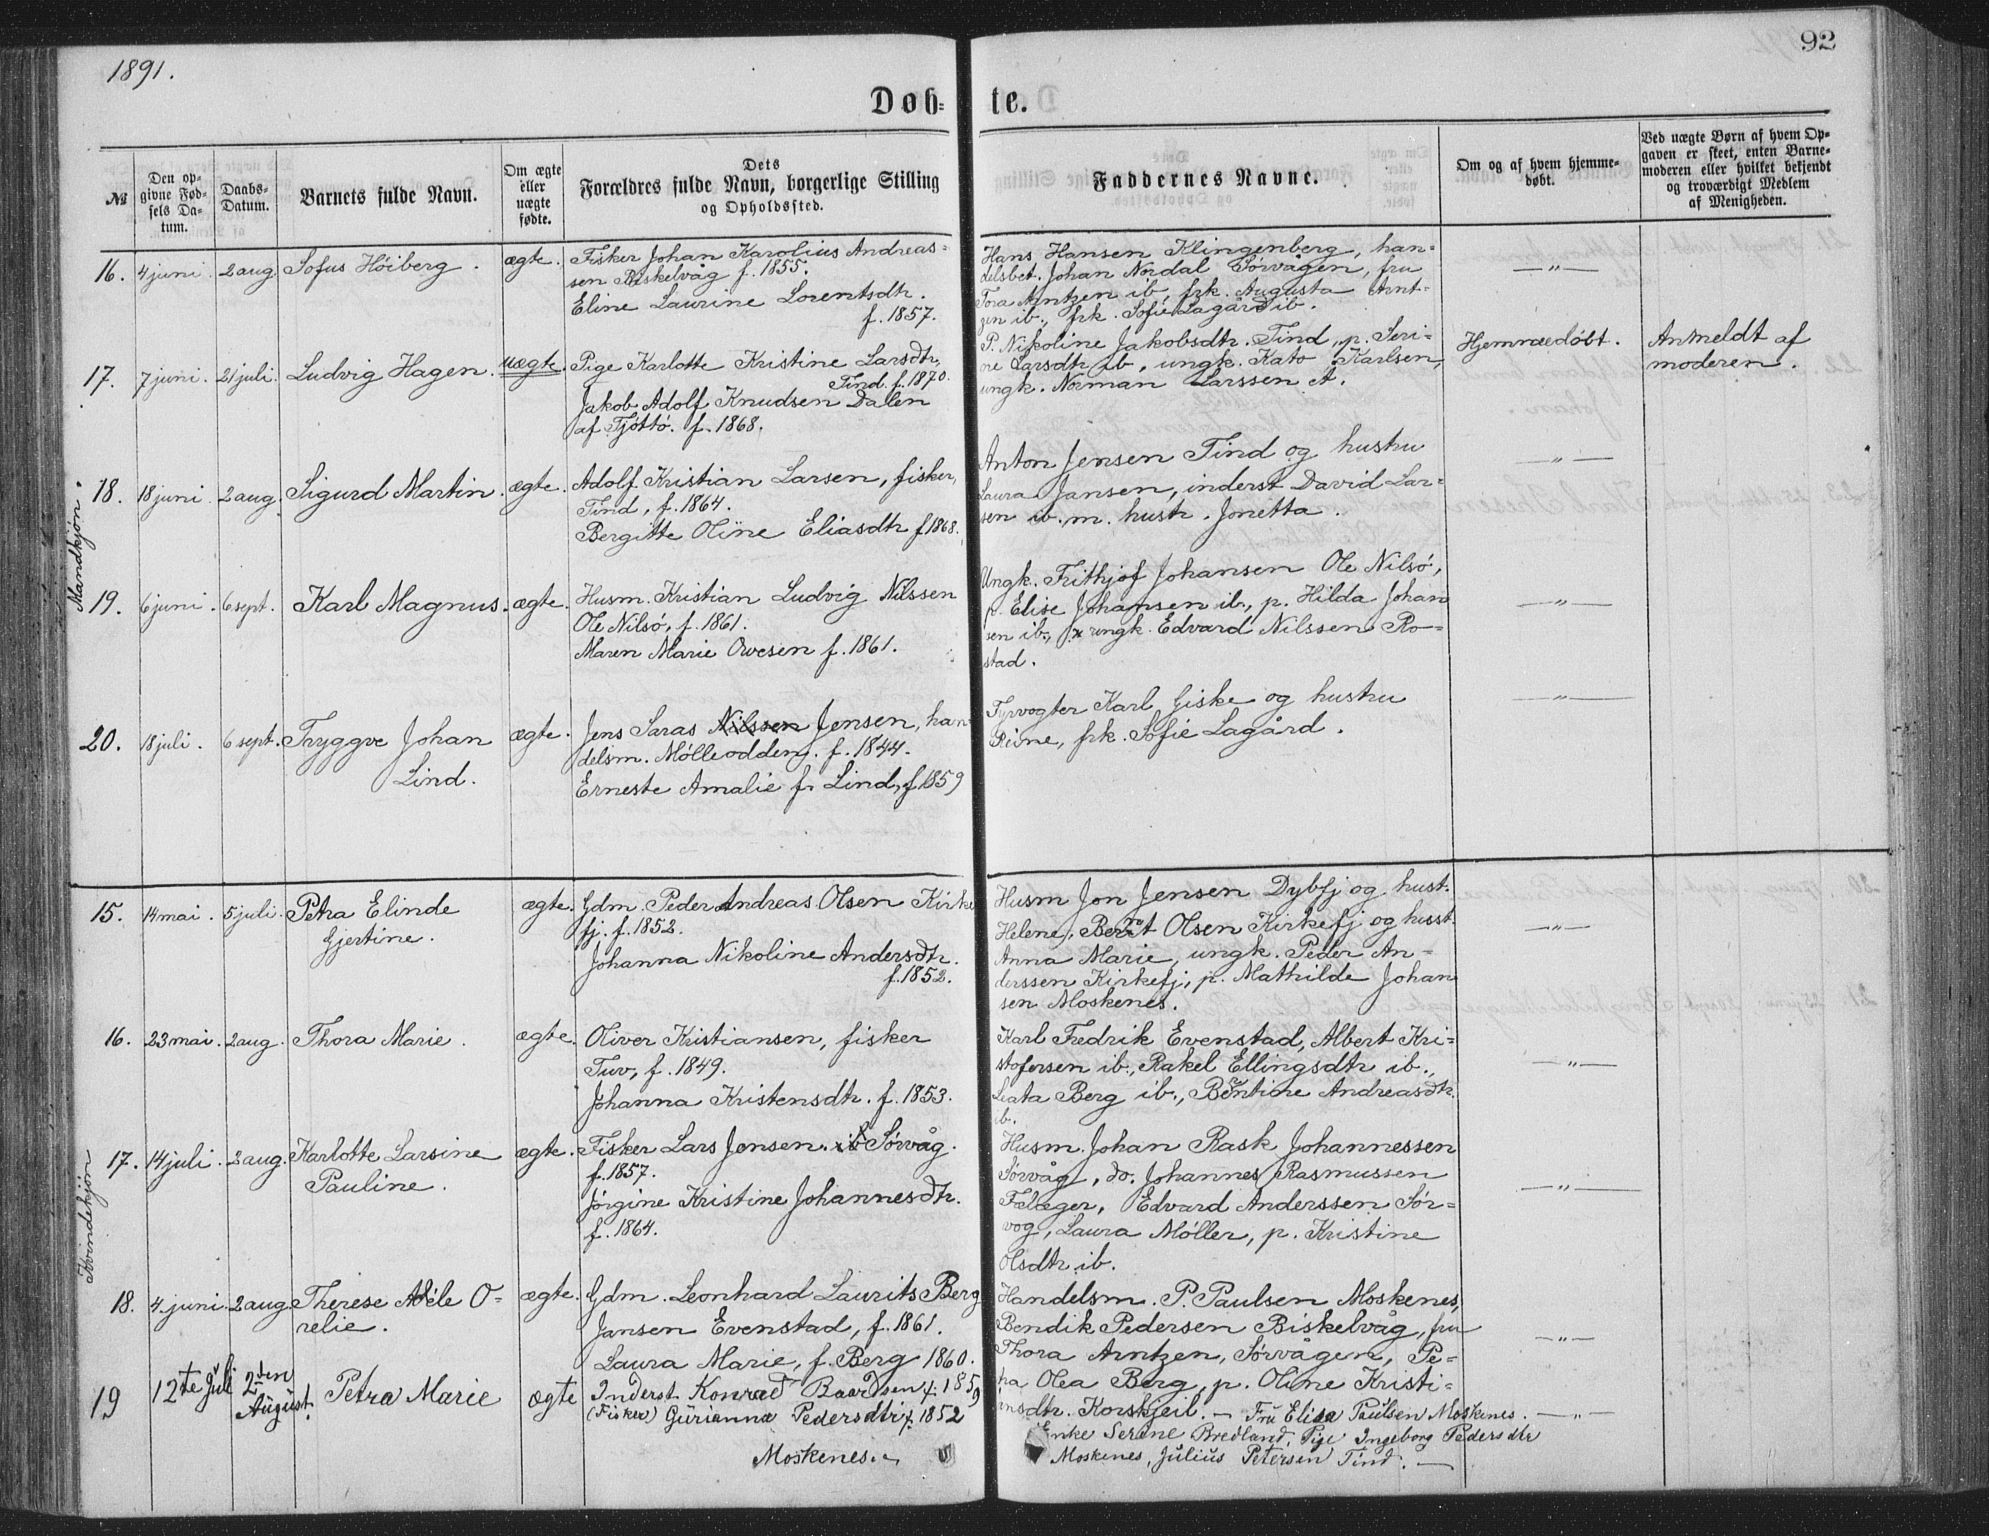 1891.
92
Døb-
te.
№
Den op-
givne Fød-
sels Da-
tum.
Daabs-
Datum.
Barnets fulde Navn.
Om ægte
eller
uægte
fødte.
Dets
Forældres fulde Navn, borgerlige Stilling
og Opholdssted.
Faddernes Navne.
Om og af hvem hjemme-
døbt.
Ved uægte Børn af hvem Op-
gaven er skeet, enten Barne-
moderen eller hvilket bekjendt
og troværdigt Medlem
af Menigheden.
Mandkjøn.
16. 4 juni. 2 aug. Sofus Höiberg. ægte.
Fisker Johan Karolius Andreas-
sen Biskelvåg f. 1855.
Eline Laurine Lorentsdtr.
f. 1857.
Hans Hansen Klingenberg, han-
delsbet. Johan Nordal Sørvågen, fru
Tora Arntzen ib, frk. Augusta Arnt-
zen ib., frk. Sofie Lagård ib.
—„—
17. 7 juni. 21 juli. Ludvig Hagen. uægte.
Pige Karlotte Kristine Larsdtr,
Tind. f. 1870.
Jakob Adolf Knudsen Dalen
af Tjøttö. f. 1868.
P. Nikoline Jakobsdtr. Tind, p. Seri-
ne Larsdtr ib, ungk. Kato Karlsen,
ungk. Norman Larssen A.
Hjemmedöbt.
Anmeldt af
moderen.
18. 18 juni 2 aug. Sigurd Martin. ægte.
Adolf Kristian Larsen, fisker,
Tind, f. 1864.
Bergitte Oline Eliasdtr f 1868.
Anton Jensen Tind og hustru
Laura Jansen, inderst David Lar-
sen ib. m. hustr. Jonetta.
—„—
19. 6 juni. 6 sept. Karl Magnus. ægte.
Husm. Kristian Ludvig Nilssen
Ole Nilsö, f. 1861.
Maren Marie Ovesen f. 1861.
Ungk. Frithjof Johansen Ole Nilsö,
p. Elise Johansen ib., p. Hilda Johan
sen ib., ungk. Edvard Nilssen Ro-
stad.
—„—
20. 18 juli. 6 sept. Tryggve Johan
Lind. ægte.
Jens Saras Nilssen Jensen, han
delsm. Mølleodden. f. 1844.
Erneste Amalie f. Lind, f 1859
Fyrvogter Karl Giske og hustru
frk. Sofie Lagård.
—„—
Kvindekjön
15. 14 mai. 5 juli. Petra Elinde
Gjertine. ægte.
Gdm. Peder Andreas Olsen Kirke
fj. f. 1852.
Johanna Nikoline Andersdtr.
f. 1852.
Husm Jon Jensen Dybfj og hust.
Helene, Bernt Olsen Kirkefj og hust.
Anna Marie, ungk. Peder An-
derssen Kirkefj, p. Mathilde Johan
sen Moskenes.
—„—
16. 23 mai. 2 aug. Thora Marie. ægte.
Oliver Kristiansen, fisker
Tuv, f. 1849.
Johanna Kristensdtr. f. 1853.
Karl Fredrik Evenstad, Albert Kri-
stofersen ib., Rakel Ellingsdtr ib.,
Leata Berg ib., Bentine Andreasdtr.
ib.
—„—
17. 14 juli. 2 aug. Karlotte Larsine
Pauline. ægte.
Fisker Lars Jensen. ib Sörvåg.
f. 1857.
Jörgine Kristine Johannesdtr.
f. 1864.
Husm. Johan Rask Johannessen
Sörvåg, do. Johannes Rasmussen
Falæger, Edvard Anderssen Sör-
vog, Laura Möller, p. Kristine
Olsdtr ib.
—„—
18. 4 juni 2 aug. Therese Adele O-
relie. ægte.
Gdm. Leonhard Laurits Berg
Jansen Evenstad, f. 1861.
Laura Marie, f. Berg 1860.
Handelsm. P. Paulsen Moskenes,
Bendik Pedersen Biskelvåg, fru
Thora Arntzen, Sörvågen, Pe-
tra Olea Berg, p. Oline Kristi-
insdtr. Korskjeil.
—„—
19 12te Juli 2den
August. Petra Marie ægte
Inderst Konrad Baardsen f. 1859
(Fisker) Gürianna Pedersdtr f. 1852
Moskenes.
Fru Elisa Paulsen Moskenes.
Enke Serene Bredland, Pige Ingeborg Pedersdtr
Moskenes, Julius Petersen Tind.
—„—